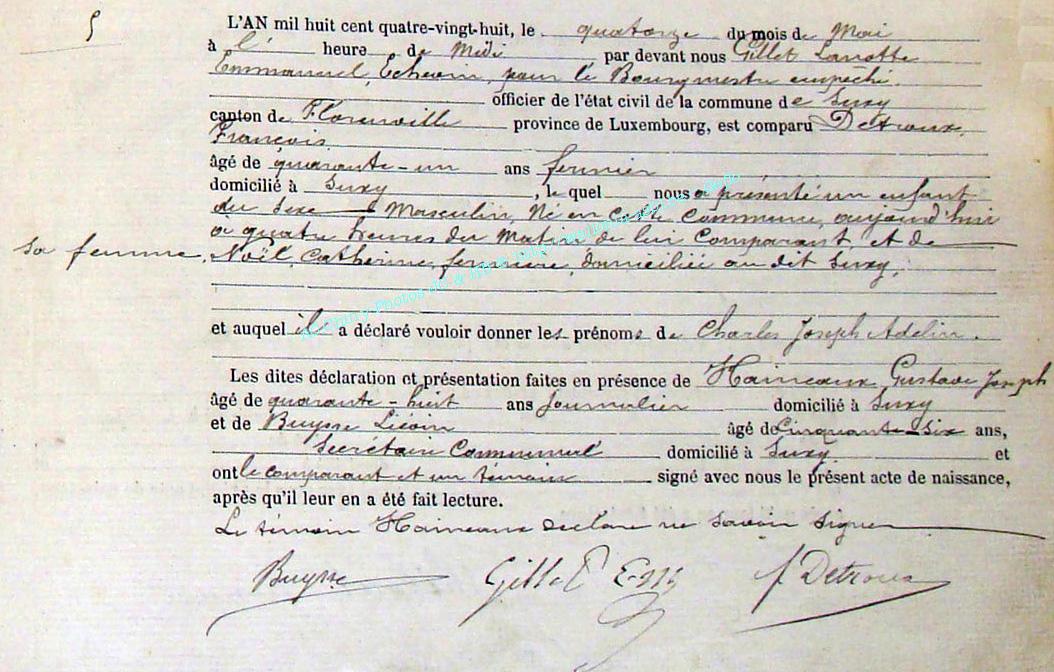 5
L'AN mil huit cent quatre-vingt-huit, le quatorze du mois de Mai
à l' heure de Midi par devant nous Gillet Lanotte
Emmanuel, Echevin, pour le Bourgmestre empêché.
officier de l'état civil de la commune de Suxy
canton de Florenville province de Luxembourg, est comparu Detroux,
François
âgé de quarante-un ans fermier
domicilié à Suxy, lequel nous a présenté un enfant
du sexe Masculin, Né en cette Commune, aujourd'hui
a quatre heures du Matin, de lui Comparant, et de
sa femme, Noël, Catherine, fermière, domiciliée au dit Suxy,
et auquel il a déclaré vouloir donner les prénoms de Charles Joseph Adelin.
Les dites déclaration et présentation faites en présence de Haineaux, Gustave Joseph
âgé de quarante-huit ans Journalier domicilié à Suxy
et de Buysse âgé de Cinquante-six ans,
Secrétaire Communal domicilié à Suxy et
ont le comparant et un témoin signé avec nous le présent acte de naissance,
après qu'il leur en a été fait lecture.
Le témoin Haineaux déclare ne savoir signer
Buysse Gillet F Detroux